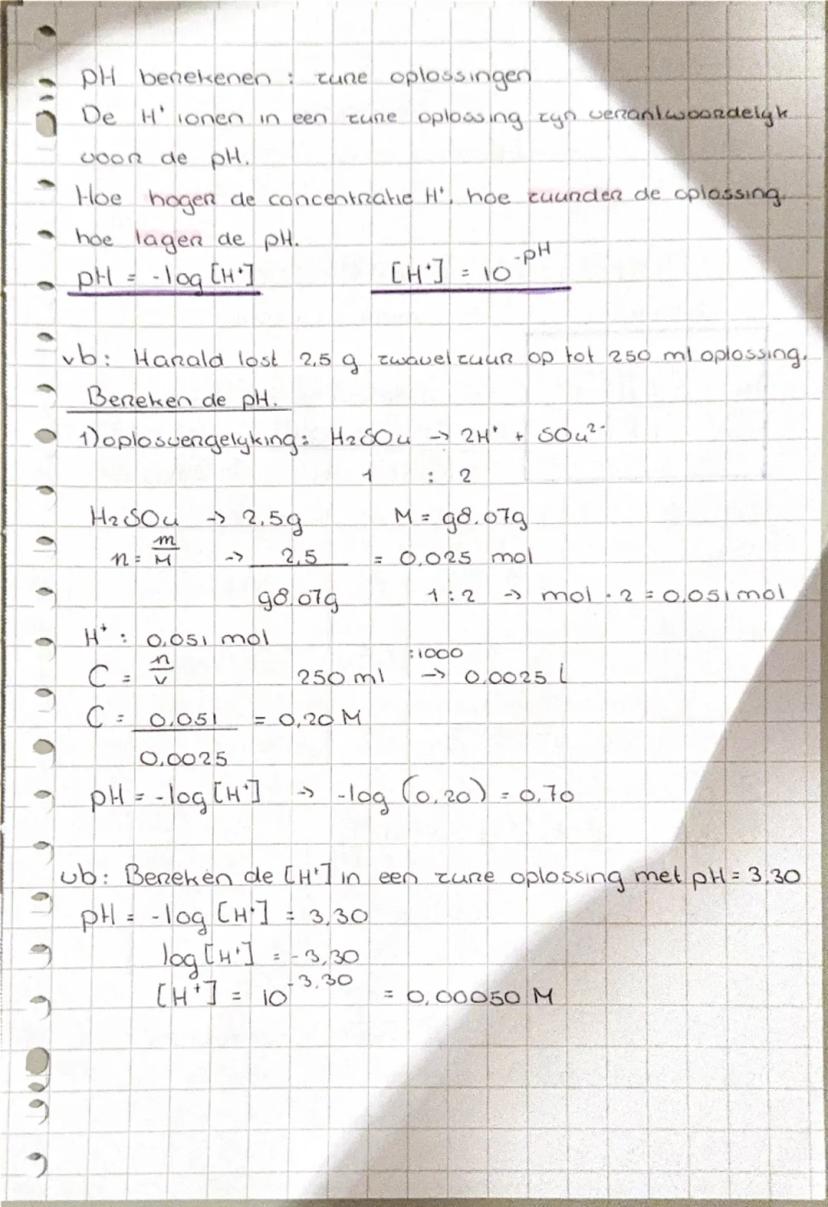 pH berekenen : zure oplossingen
De H⁺ ionen in een zure oplossing zijn verantwoordelijk
voor de pH.
Hoe hoger de concentratie H⁺, hoe zuurder de oplossing.
hoe lager de pH.
pH = -log [H⁺] [H⁺] = 10^-pH
vb: Harald lost 2,5 g zwavelzuur op tot 250 ml oplossing.
Bereken de pH.
1) oplosvergelijking: H₂SO₄ → 2H⁺ + SO₄²⁻
1 : 2
H₂SO₄ → 2,5g M = 98.07g
n = m/M → 2,5 / 98.07g = 0,025 mol
1:2 → mol · 2 = 0,051 mol
H⁺ : 0,051 mol
C = n/v 250 ml :1000 → 0,0025 l
C = 0,051 / 0,0025 = 0,20 M
pH = -log [H⁺] → -log (0,20) = 0,70
vb: Bereken de [H⁺] in een zure oplossing met pH = 3,30
pH = -log [H⁺] = 3,30
log [H⁺] = -3,30
[H⁺] = 10^-3,30 = 0,00050 M